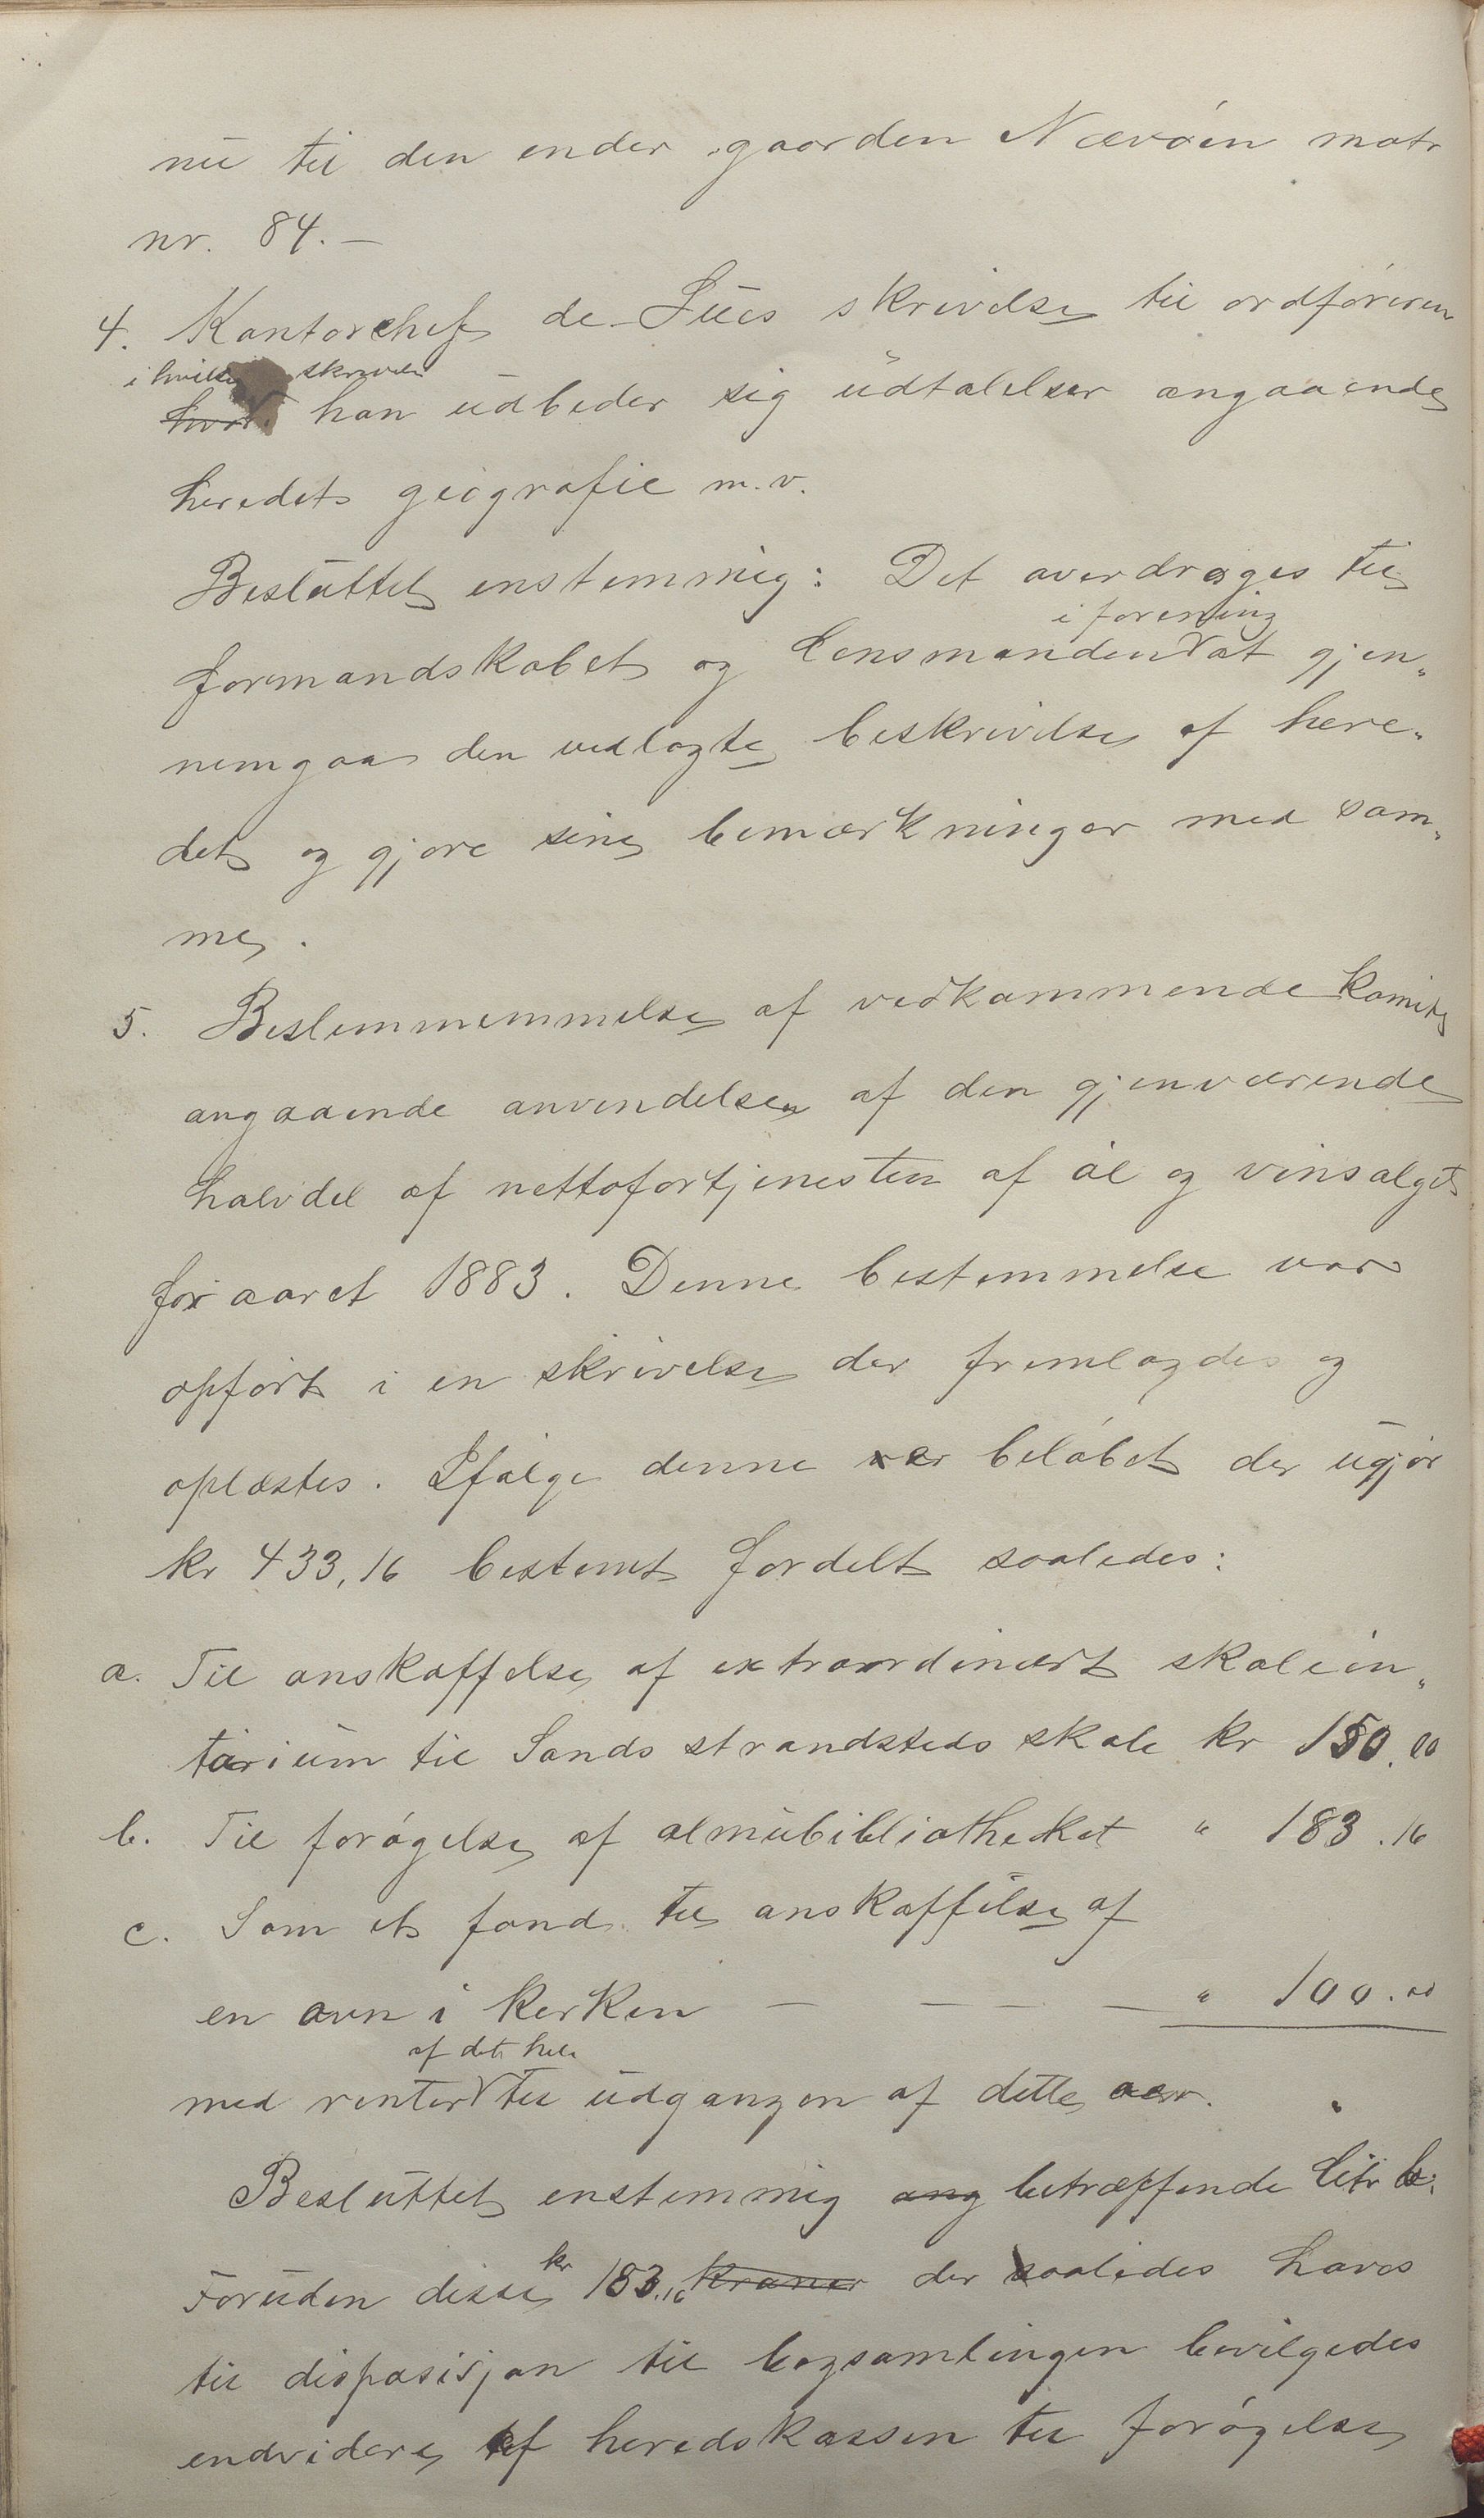 nu til den ender gaarden Nævóen matr
nr. 84.—
4. Kontorchef de Sues skrivelse til ordfóreren
i hvilken skrivelse
han udbeder sig udtalelser angaaende
heredets geografie m.v.
Besluttet enstemmig: Det overdrages til
i forening
formandskabet og Lensmanden at gjen„
nemgaa den vedlagte beskrivelse af here„
det og gjøre sine bemærkninger med sam„
me.
5. Beslemmemmelse af vedkommende komite
angaaende anvendelsen af den gjenværende
halvdel af nettofortjenesten af ól og vinsalget
for aaret 1883. Denne bestemmelse var
opfórt i en skrivelse der fremlagdes og
oplæstes. Ifólge denne er belóbet der ugjór
kr 433,16 bestemt fordelt saaledes:
a. Til anskaffelse af extraordinært skolein„
tarium til Sands strandsteds skole kr 150.00
b. Til forógelse af almubibliotheket " 183.16
c. Som et fond til anskaffelse af
en ovn i kerken — — — — " 100.00
af det hele
med renter til udgangen af dette aar.
Besluttet enstemmig ang betræffende Litr b:
kr
Foruden disse 183.16 Kroner der saaledes haves
til disposisjon til bogsamlingen bevilgedes
endvidere af heredskassen til forógelse